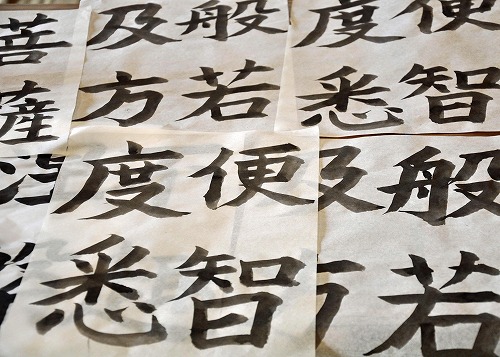 便智
度悉
般若
及方
菩薩
般若
及方
便智
度悉